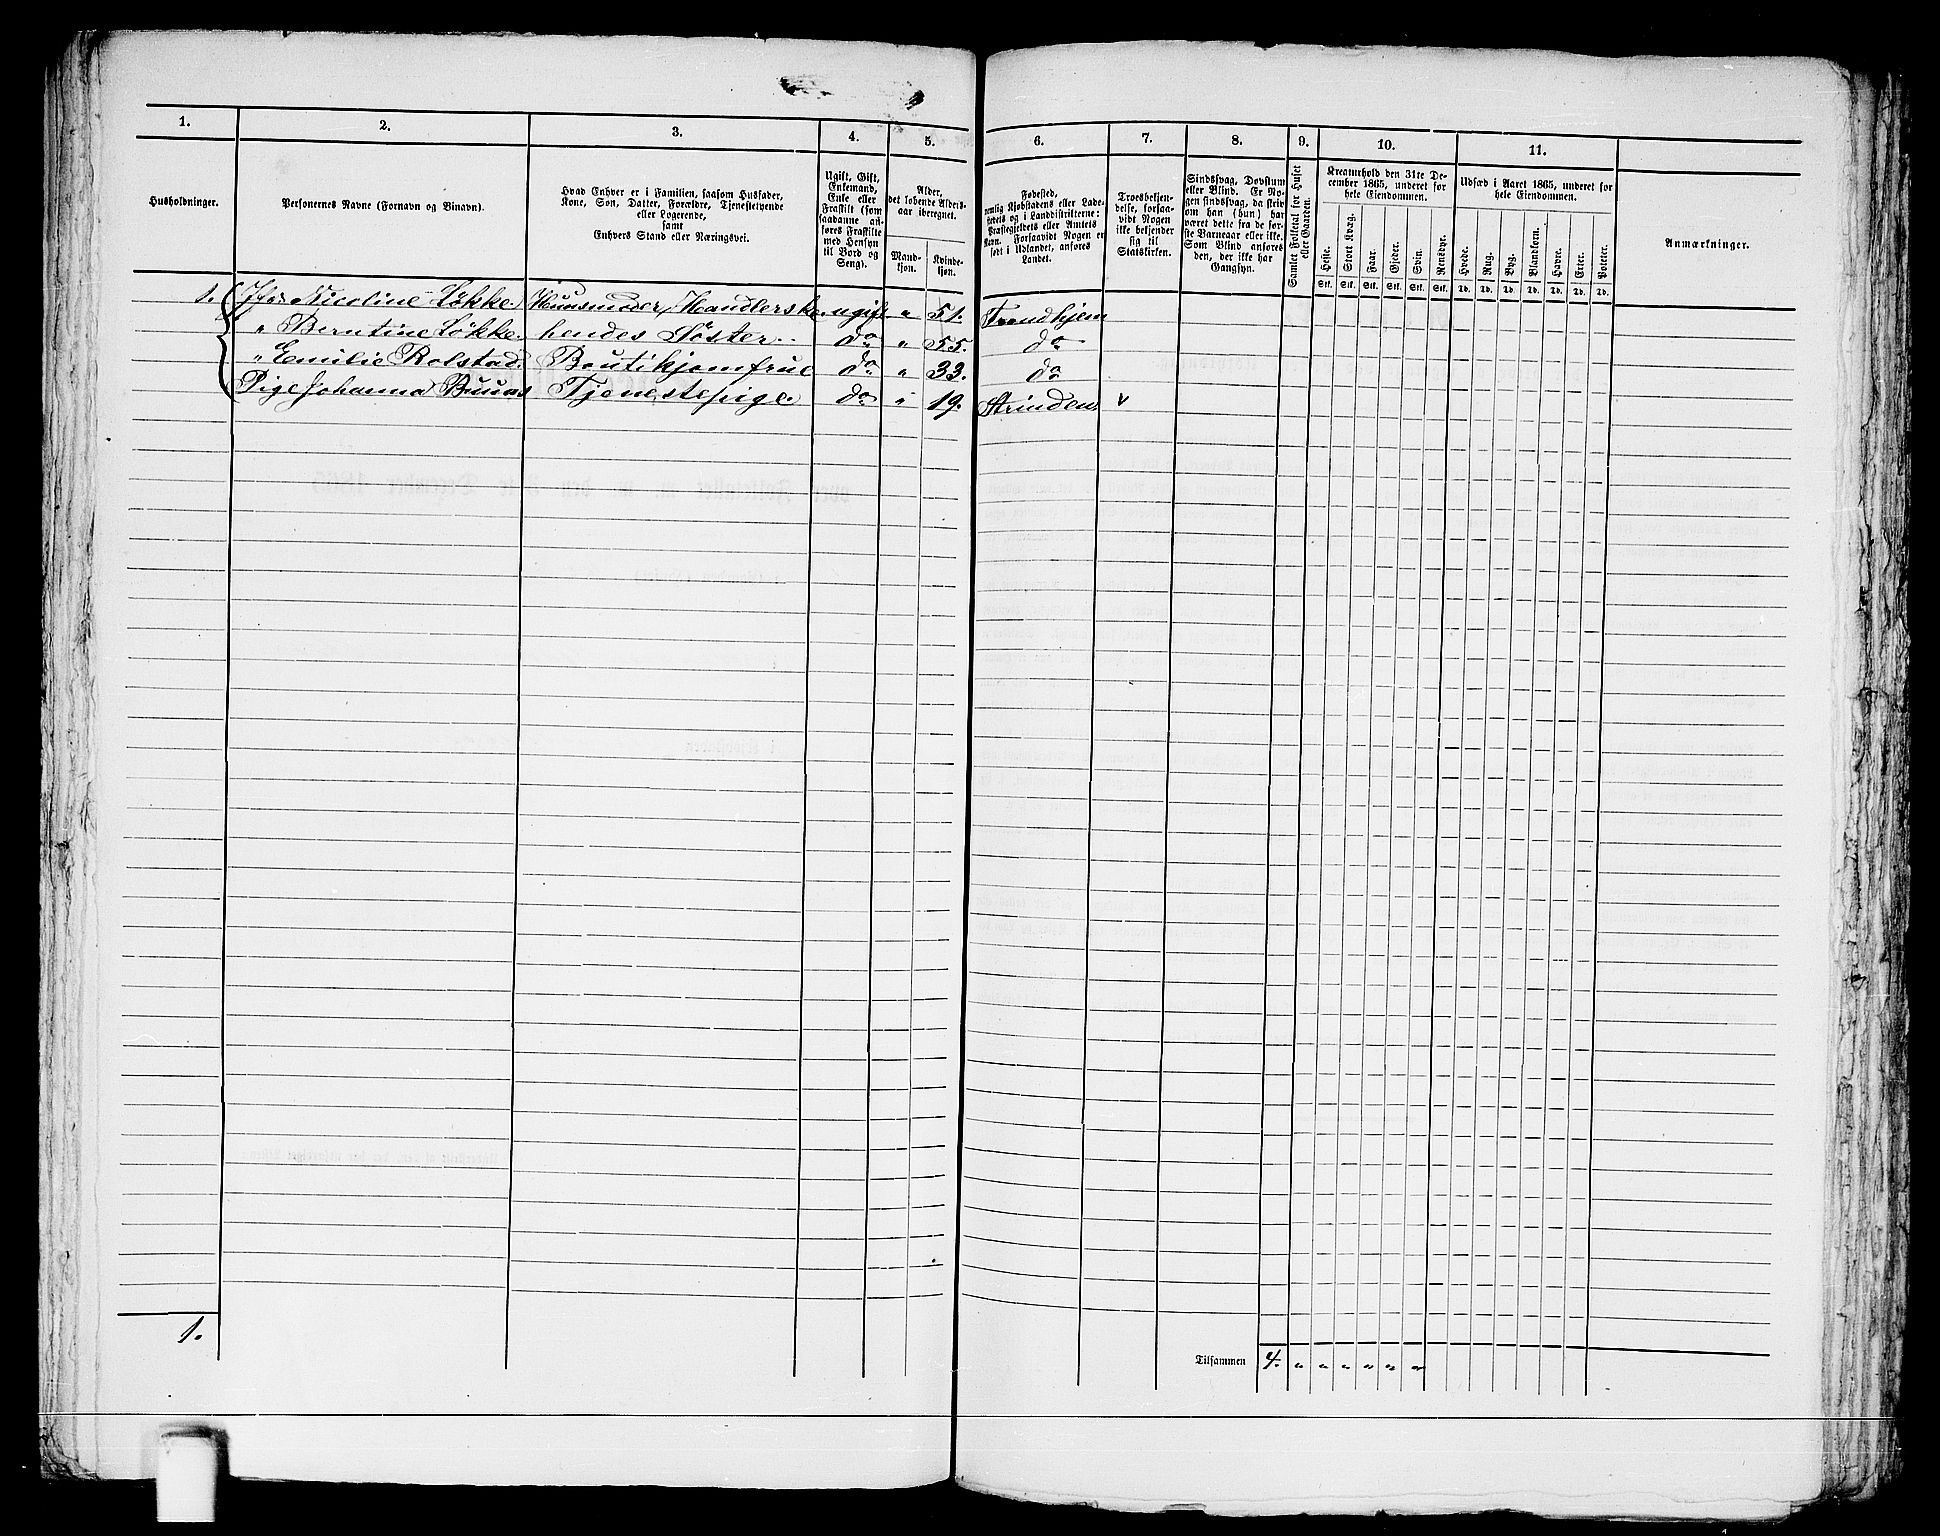 1. 2. 3. 4. 5. 6. 7. 8. 9. 10. 11.
Husholdninger.
Personernes Navne (Fornavn og Binavn).
Hvad Enhver er i Familien, saasom Husfader,
Kone, Søn, Datter, Forældre, Tjenestetyende
eller Logerende,
samt
Enhvers Stand eller Næringsvei.
Ugift, Gift,
Enkemand,
Enke eller
Fraskilt (som
saadanne an-
føres Fraskilte
med Hensyn
til Bord og
Seng).
Alder,
det løbende Alders-
aar iberegnet.
Mand-
kjøn.
Kvinde-
kjøn.
Fødested,
nemlig Kjøbstadens eller Lade-
stedets og i Landdistrikterne:
Præstegjeldets eller Annexets
Navn. Forsaavidt Nogen er
født i Udlandet, anføres
Landet.
Troesbekjen-
delse, forsaa-
vidt Nogen
ikke bekjender
sig til
Statskirken.
Sindssvag, Døvstum
eller Blind. Er No-
gen sindssvag, da skriv
om han (hun) har
været dette fra de før-
ste Barneaar eller ikke.
Som Blind anføres
den, der ikke har
Gangsyn.
Samlet Folketal for Huset
eller Gaarden.
Kreaturhold den 31te De-
cember 1865, underet for
hele Eiendommen.
Heste. Stort Kvæg. Faar. Gjeder. Svin. Rensdyr.
Stk. Stk. Stk. Stk. Stk. Stk.
Udsæd i Aaret 1865, underet for
hele Eiendommen.
Hvede. Rug. Byg. Blandkorn. Havre. Erter. Poteter.
Td. Td. Td. Td. Td. Td. Td.
Anmærkninger.
1. Jfr Nicoline Løkke. Huusmoder, Handlerske ugift " 51. Trondhjem
" Berntine Løkke. hendes Søster do " 55. do
" Emilie Rolstad. Boutikjomfrue do " 33. do
Pige Johanna Buuas Tjenestepige. do " 19. Strinden. v
1.
Tilsammen 4. " " " " " "